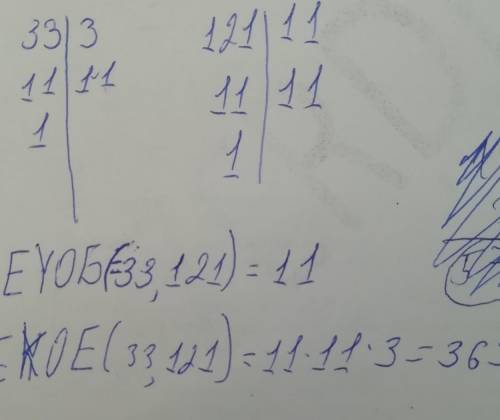 33|3 121|11
11|11 11|11
1| 1|
ЕҮОБ(33,121)=11
ЕКОЕ(33,121)=11·11·3=363